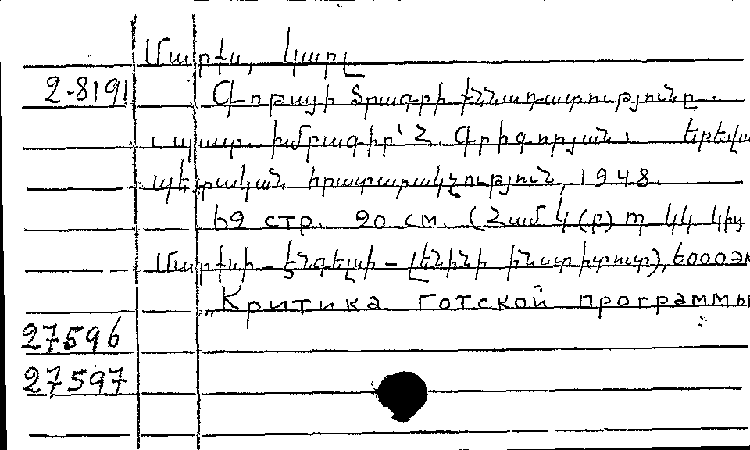 Մարքս, Կարլ
2-8191 Գոթայի ծրագրի քննադատությունը.
պատ. խմբագիր՝ Հ. Գրիգորյան։ Երևա
պետական հրատարակչություն, 1948.
69 стр. 20 см. (Համ Կ(բ)Պ ԿԿ կից
Մարքսի - Էնգելսի - Լենինի ինստիտուտ), 6000
"Критика готской программы
27596
27597